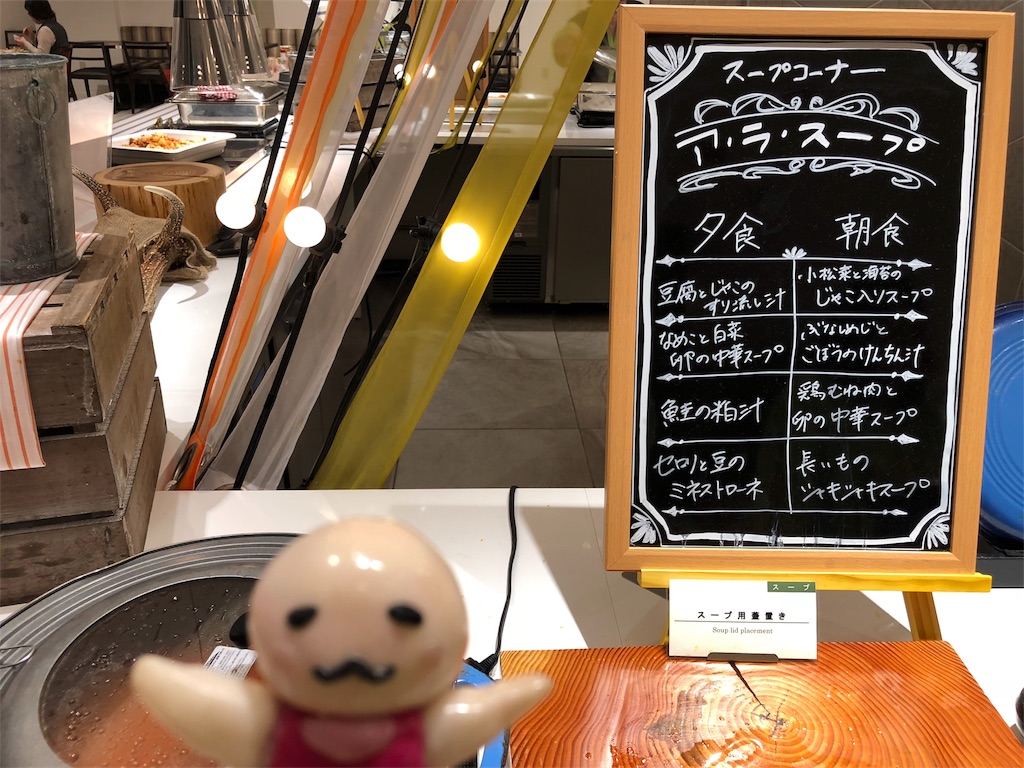 スープコーナー
ア・ラ・スープ
夕食
豆腐とじゃこの
すり流し汁
なめこと白菜
卵の中華スープ
鮭の粕汁
セロリと豆の
ミネストローネ
朝食
小松菜と海苔の
じゃこ入りスープ
ぶなしめじと
ごぼうのけんちん汁
鶏むね肉と
卵の中華スープ
長いもの
シャキシャキスープ
スープ
スープ用蓋置き
Soup lid placement